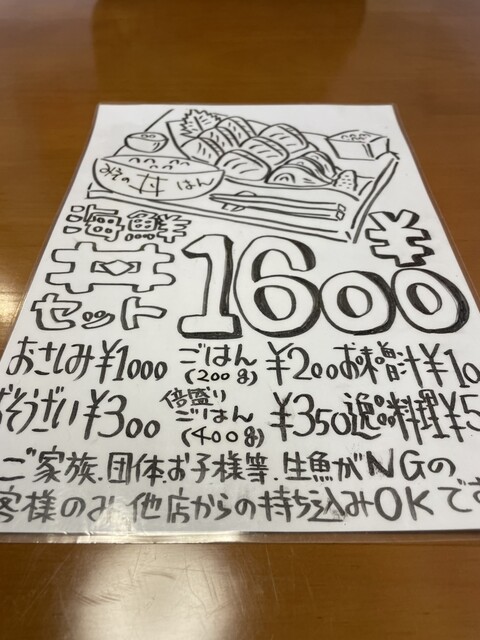 丼 はん
海鮮
丼
セット
¥1600
おさしみ ¥1000 ごはん (200g) ¥200 お味噌汁 ¥10
おそうざい ¥300 倍盛り ごはん (400g) ¥350 逸品料理 ¥5
ご家族.団体.お子様等.生魚がNGの
客様のみ.他店からの持ち込みOKです